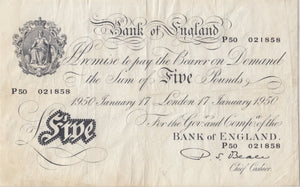 Bank of England
P50 021858
Promise to pay the Bearer on Demand
the Sum of Five Pounds.
P50 021858
1950 January 17 London 17 January 1950
For the Gov.r and Comp.a of the
Five
BANK OF ENGLAND.
P.S. Beale
Chief Cashier.